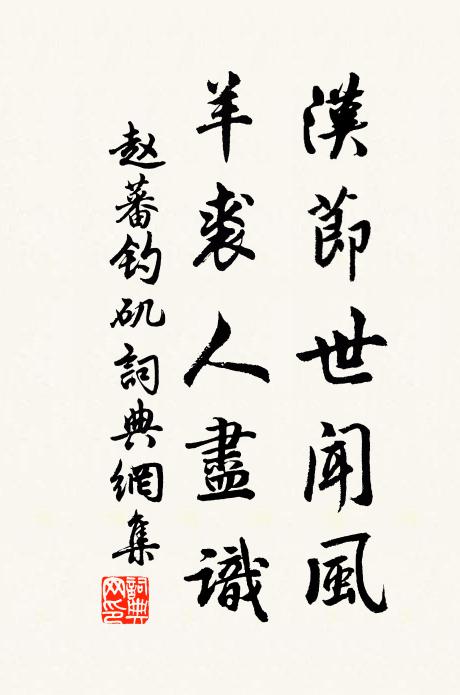 漢節世聞風
羊裘人盡識
赵蕃钓矶詞典網集
詞典网印